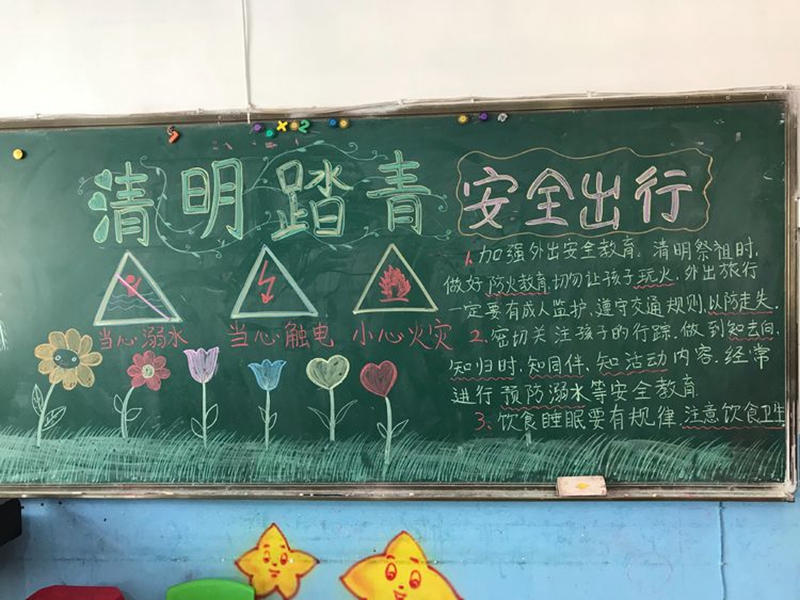 清明踏青
安全出行
当心溺水
当心触电
小心火灾
1.加强外出安全教育。清明祭祖时,
做好防火教育,切勿让孩子玩火,外出旅行
一定要有成人监护,遵守交通规则,以防走失。
2、密切关注孩子的行踪,做到知去向,
知归时,知同伴,知活动内容,经常
进行预防溺水等安全教育
3、饮食睡眠要有规律,注意饮食卫生